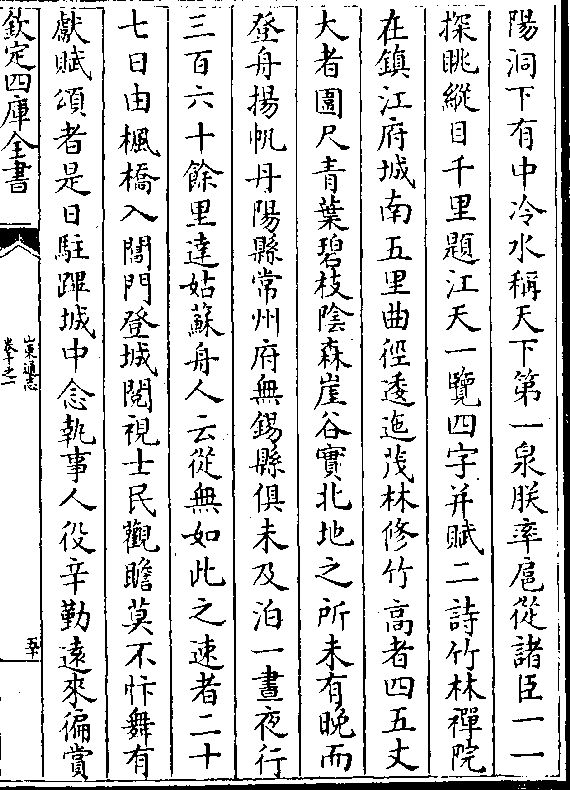 陽洞下有中冷水稱天下第一泉朕率扈從諸臣一一
探眺縱目千里題江天一覽四字并賦二詩竹林禪院
在鎮江府城南五里曲徑逶迤茂林修竹高者四五丈
大者圍尺青葉碧枝陰森崖谷實北地之所未有晚而
登舟揚帆丹陽縣常州府無錫縣俱未及泊一晝夜行
三百六十餘里達姑蘇舟人云從無如此之速者二十
七日由楓橋入閶門登城閱視士民觀瞻莫不忭舞有
獻賦頌者是日駐蹕城中念執事人役辛勤遠來徧賞
欽定四庫全書
山東通志
卷一之一
五十